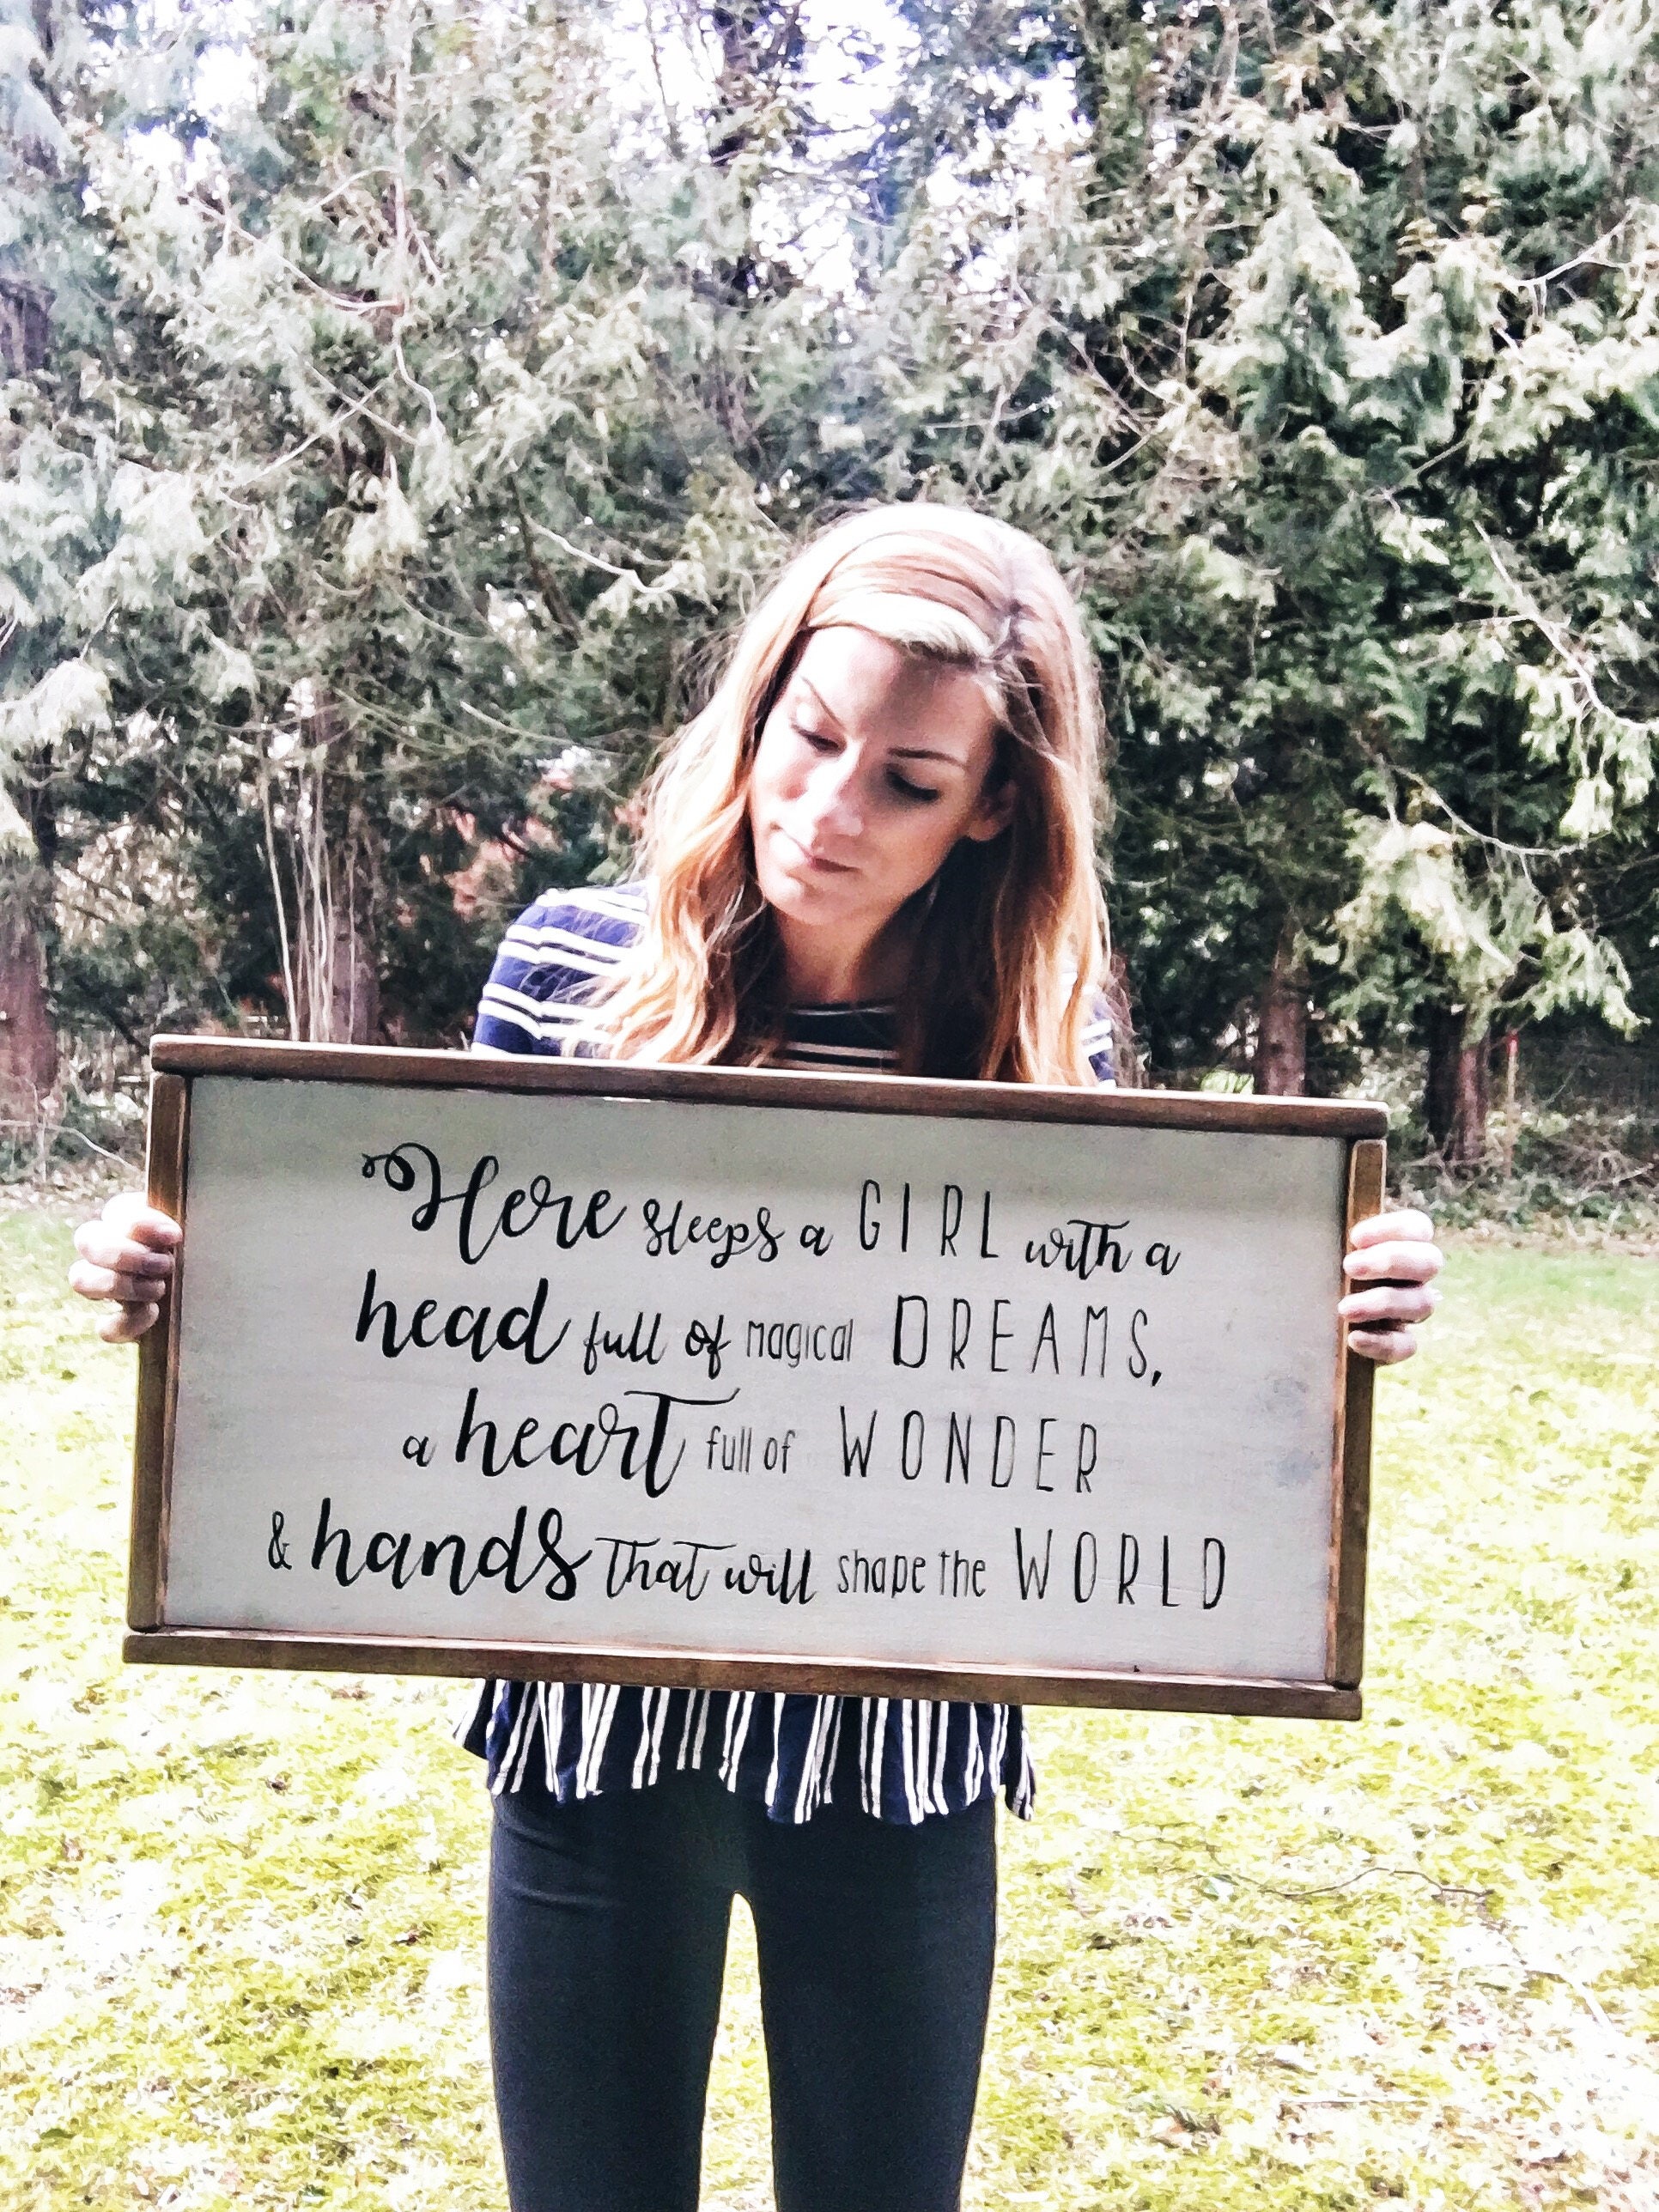 Here sleeps a GIRL with a
head full of magical DREAMS,
a heart full of WONDER
& hands that will shape the WORLD